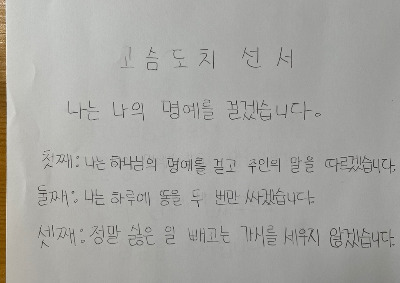 고슴도치 선서
나는 나의 명예를 걸겠습니다.
첫째: 나는 하나님의 명예를 걸고 주인의 말을 따르겠습니다.
둘째: 나는 하루에 똥을 두 번만 싸겠습니다.
셋째: 정말 싫은 일 빼고는 가시를 세우지 않겠습니다.